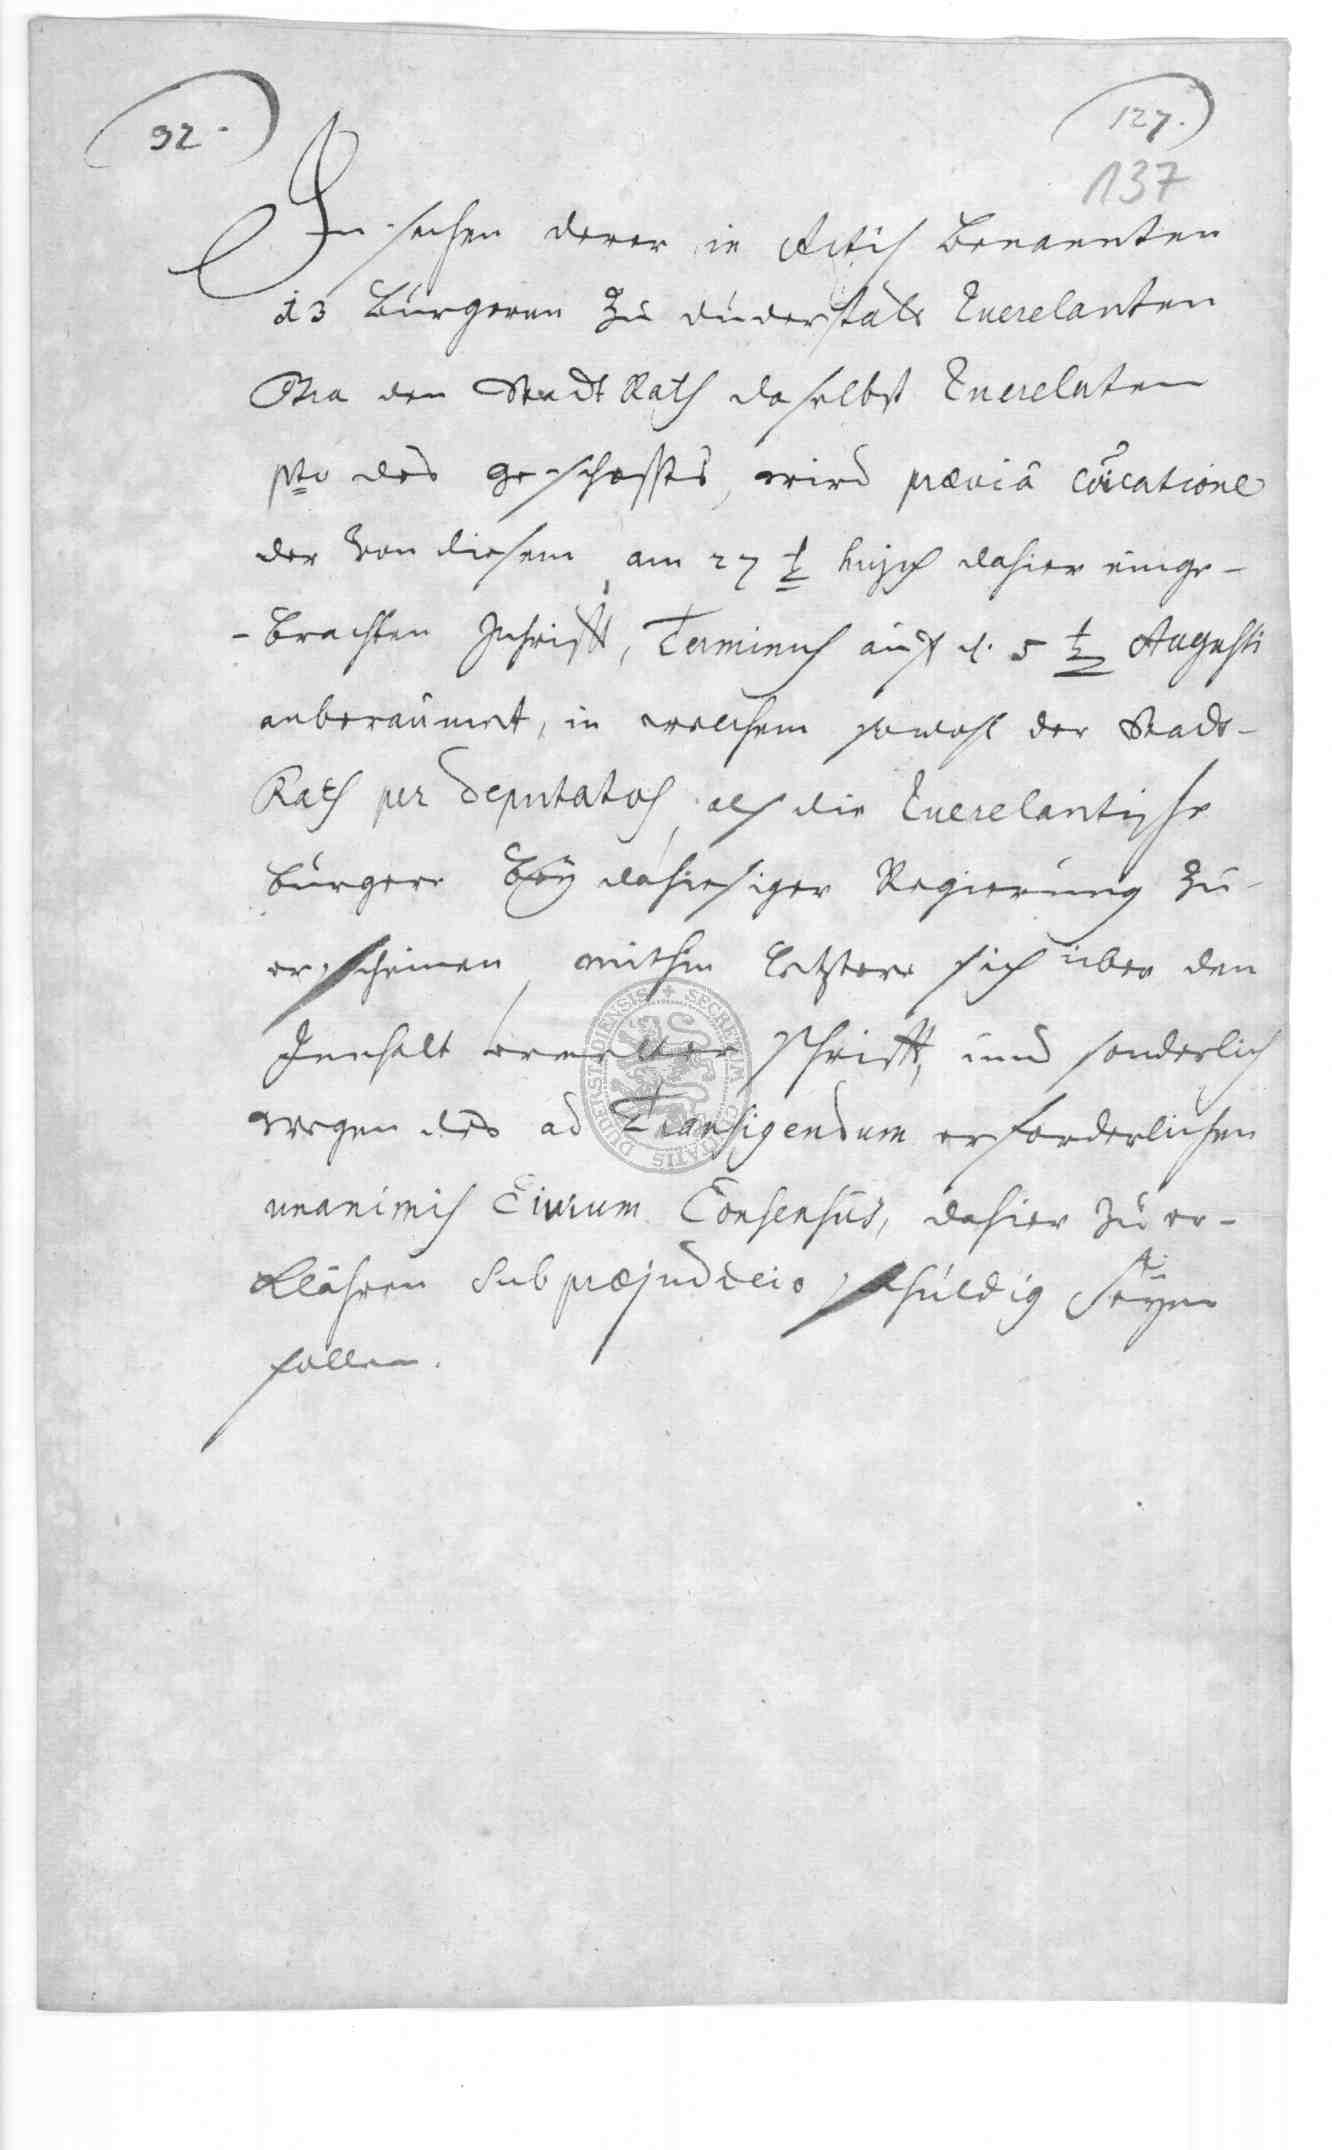 92.
127.
137
In sachen derer in Actis benannten
13 bürgeren zu duderstatt Querelanten
Ctra den Stadt Rath daselbst Querelaten
pto des geschosses, wird præviâ cõicatione
der von diesem, am 27 t hujus dahier einge-
-brachten Schrifft, Terminus auff d. 5 t Augusti
anberaumet, in welchem sowohl der Stadt-
Rath per deputatos, als die Querelantische
bürgere bey dahiesiger Regierung zu-
erscheinen, mithin letztere sich über den
Innhalt ermelter schrifft, und sonderlich
wegen des ad Transigendum erforderlichen
unanimis Civium Consensus, dahier zu er-
klähren sub præjudicio schuldig seyen
sollen.
SECRETUM DUDERSTADIENSIS